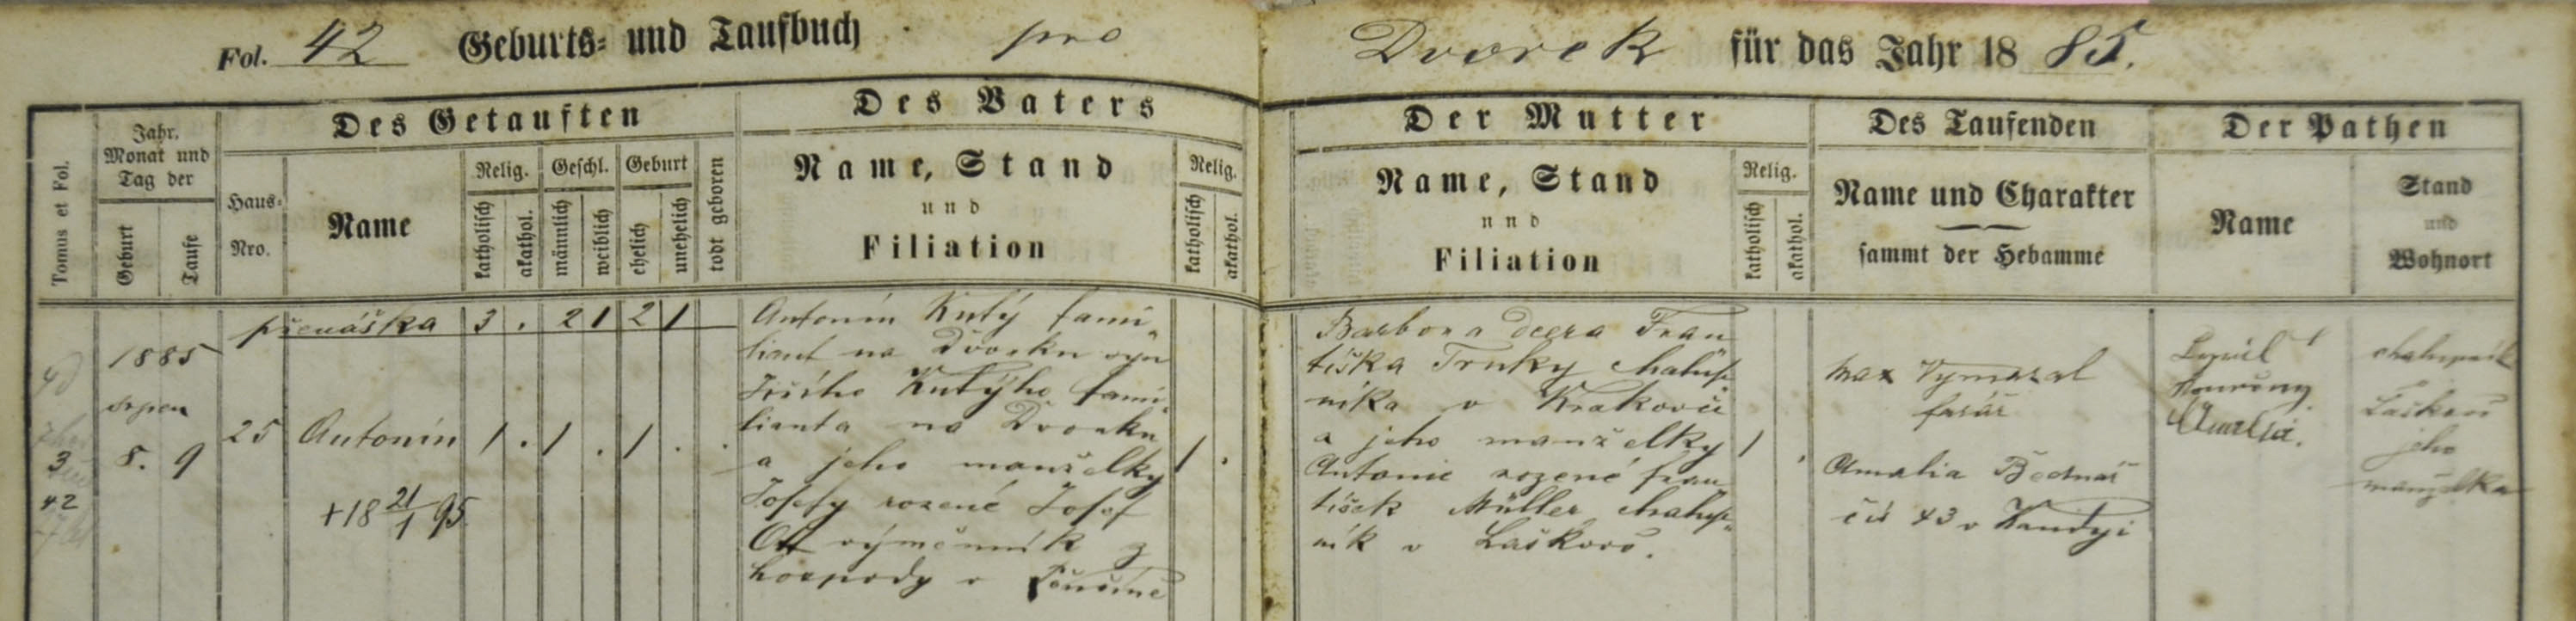 Fol. 42 Geburts= und Taufbuch pro Dvorek für das Jahr 1885.
Tomus et Fol.
Jahr. Monat und Tag der
Geburt
Taufe
Des Getauften
Haus= Nro.
Name
Relig.
katholisch
akathol.
Geschl.
männlich
weiblich
Geburt
ehelich
unehelich
todt geboren
Des Vaters
Name, Stand
und
Filiation
Relig.
katholisch
akathol.
Der Mutter
Name, Stand
und
Filiation
Relig.
katholisch
akathol.
Des Taufenden
Name und Charakter
sammt der Hebamme
Der Pathen
Name
Stand
und
Wohnort
přenáška 3 . 2 1 2 1
3
42
1885
srpen
8. 9
25 Antonín 1 . 1 . 1 . .
+18 21/1 95
Antonín Kutý fami„
liant na Dvorku syn
Jiřího Kutýho fami„
lianta na Dvorku
a jeho manželky
Josefy rozené Josef
Ott výměnník z
hospody v
1 .
Barbora dcera Fran
tiška Trnky chalup„
níka v Krakovci
a jeho manželky
Antonie rozené fran
tišek Müller chalup„
ník v Laškově.
1 .
Max Vymazal
farář
Amalia Bednář
čís 43 v Kandyi
Amalia.
chalupník
Laškov
jeho
manželka